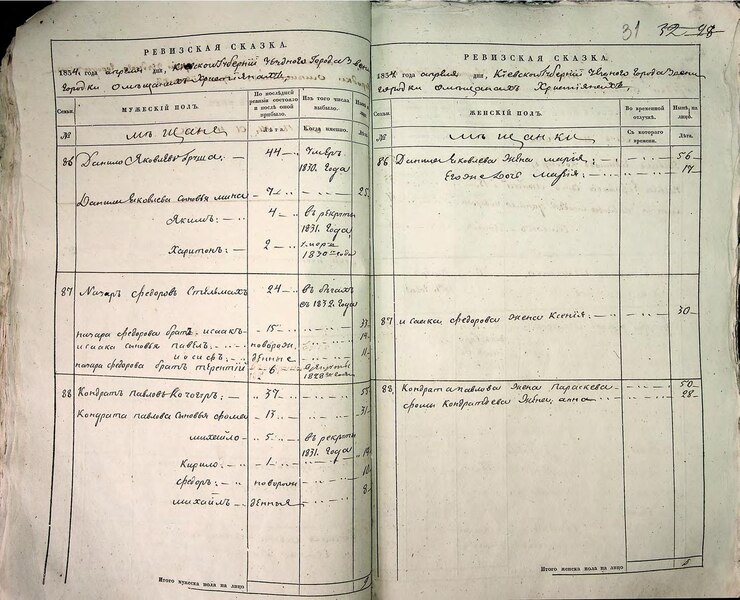 РЕВИЗСКАЯ СКАЗКА.
1834 года апреля дня, Киевской Губернии Уездного Города Звени
городки о мещанах Христианах,
Семьи.
МУЖЕСКІЙ ПОЛЪ.
По последней ревизіи состояло и после оной прибыло.
Изъ того числа выбыло.
№
мѣщане
Лѣта
Когда именно.
86 Данило Яковлевъ
44
Умеръ
1830. года
Данила Яковлева сыновья мина
7
25
Якимъ:
4
въ рекруты
1831. Года
Харитонъ:
2
1830 года
87 Назаръ Федоровъ Стельмахъ
24
въ бегахъ
съ 1832. Года
назара федорова братъ, исаакъ
15
33
исаака сыновья павелъ
новорож
иосифъ
денные
11
назара федорова братъ терентій
6
88 Кондратъ Павловъ
37
55
Кондрата павлова сыновья фрома
13
31
михайло
5
въ рекруты
1831. Года
Кирило:
1
19
федоръ:
новорож
10
михайлъ
денныя
8
Итого мужеска пола на лицо
31 32 28
РЕВИЗСКАЯ СКАЗКА.
1834 года апреля дня, Киевской Губернии Уездного Города Звени
городки о мещанахъ Христіянехъ,
Семьи.
ЖЕНСКІЙ ПОЛЪ.
Во временной отлучкѣ.
Нынѣ на лицо.
№
мѣщанки
Съ котораго времени.
Лѣта.
86 Данила Яковлева жена мария;
56
Его же дочь мария:
17
87 исаака федорова жена Ксенія:
30
88 Кондрата павлова жена Параскева
50
фрома Кондратьева жена, анна
28
Итого женска пола на лицо